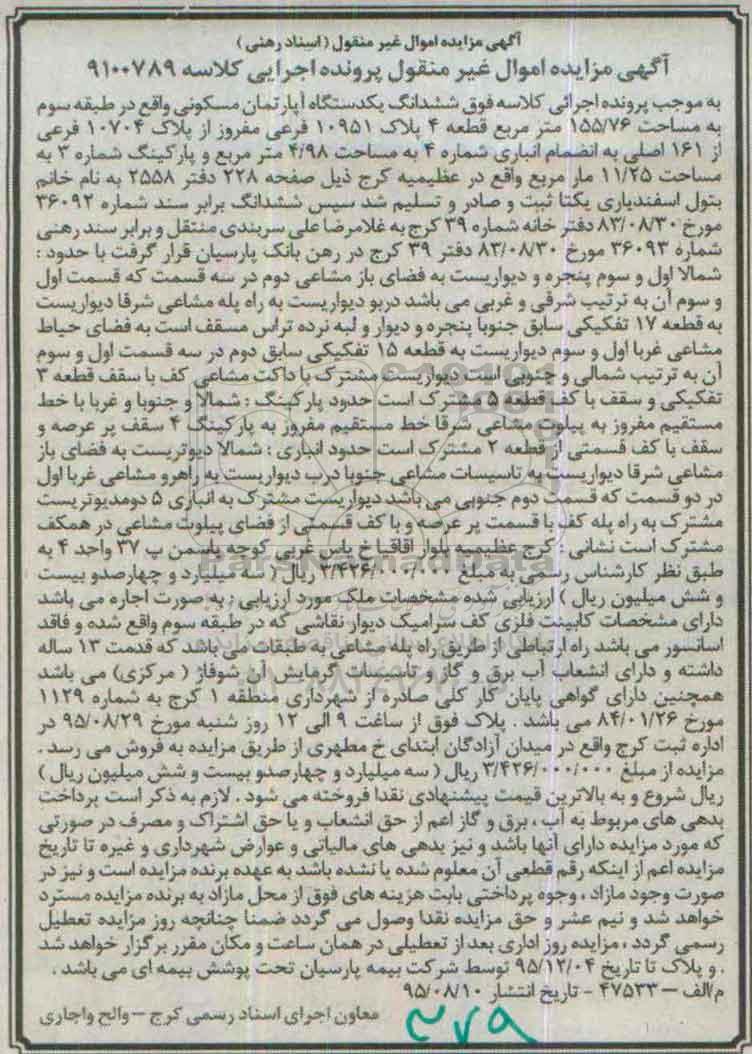 آگهی مزایده اموال غیر منقول (اسناد رهنی)
آگهی مزایده اموال غیر منقول پرونده اجرایی کلاسه ۹۱۰۰۷۸۹
به موجب پرونده اجرائی کلاسه فوق ششدانگ یکدستگاه آپارتمان مسکونی واقع در طبقه سوم
به مساحت ۱۵۵/۷۶ متر مربع قطعه ۴ پلاک ۱۰۹۵۱ فرعی مفروز از پلاک ۱۰۷۰۴ فرعی
از ۱۶۱ اصلی به انضمام انباری شماره ۴ به مساحت ۴/۹۸ متر مربع و پارکینگ شماره ۳ به
مساحت ۱۱/۲۵ مار مربع واقع در عظیمیه کرج ذیل صفحه ۲۲۸ دفتر ۲۵۵۸ به نام خانم
بتول اسفندیاری یکتا ثبت و صادر و تسلیم شد سپس ششدانگ برابر سند شماره ۳۶۰۹۲
مورخ ۸۳/۰۸/۳۰ دفتر خانه شماره ۳۹ کرج به غلامرضا علی سربندی منتقل و برابر سند رهنی
شماره ۳۶۰۹۳ مورخ ۸۳/۰۸/۳۰ دفتر ۳۹ کرج در رهن بانک پارسیان قرار گرفت با حدود :
شمالا اول و سوم پنجره و دیواریست به فضای باز مشاعی دوم در سه قسمت که قسمت اول
و سوم آن به ترتیب شرقی و غربی می باشد دربو دیواریست به راه پله مشاعی شرقا دیواریست
به قطعه ۱۷ تفکیکی سابق جنوبا پنجره و دیوار و لبه نرده تراس مسقف است به فضای حیاط
مشاعی غربا اول و سوم دیواریست به قطعه ۱۵ تفکیکی سابق دوم در سه قسمت اول و سوم
آن به ترتیب شمالی و جنوبی است دیواریست مشترک با داکت مشاعی کف با سقف قطعه ۳
تفکیکی و سقف با کف قطعه ۵ مشترک است حدود پارکینگ : شمالا و جنوبا و غربا با خط
مستقیم مفروز به پیلوت مشاعی شرقا خط مستقیم مفروز به پارکینگ ۴ سقف پر عرصه و
سقف با کف قسمتی از قطعه ۲ مشترک است حدود انباری : شمالا دیوتریست به فضای باز
مشاعی شرقا دیواریست به تاسیسات مشاعی جنوبا درب دیواریست به راهرو مشاعی غربا اول
در دو قسمت که قسمت دوم جنوبی می باشد دیواریست مشترک به انباری ۵ دومدیوتریست
مشترک به راه پله کف با قسمت پر عرصه و با کف قسمتی از فضای پیلوت مشاعی در همکف
مشترک است نشانی : کرج عظیمیه بلوار اقاقیا خ یاس غربی کوچه یاسمن پ ۳۷ واحد ۴ به
طبق نظر کارشناس رسمی به مبلغ ۳/۴۲۶/۰۰۰/۰۰۰ ریال ( سه میلیارد و چهارصدو بیست
و شش میلیون ریال ) ارزیابی شده مشخصات ملک مورد ارزیابی : به صورت اجاره می باشد
دارای مشخصات کابینت فلزی کف سرامیک دیوار نقاشی که در طبقه سوم واقع شده و فاقد
اسانسور می باشد راه ارتباطی از طریق راه پله مشاعی به طبقات می باشد که قدمت ۱۳ ساله
داشته و دارای انشعاب آب برق و گاز و تاسیسات گرمایش آن شوفاژ ( مرکزی) می باشد
همچنین دارای گواهی پایان کار کلی صادره از شهرداری منطقه ۱ کرج به شماره ۱۱۲۹
مورخ ۸۴/۰۱/۲۶ می باشد . پلاک فوق از ساعت ۹ الی ۱۲ روز شنبه مورخ ۹۵/۰۸/۲۹ در
اداره ثبت کرج واقع در میدان آزادگان ابتدای خ مطهری از طریق مزایده به فروش می رسد .
مزایده از مبلغ ۳/۴۲۶/۰۰۰/۰۰۰ ریال ( سه میلیارد و چهارصدو بیست و شش میلیون ریال )
ریال شروع و به بالاترین قیمت پیشنهادی نقدا فروخته می شود . لازم به ذکر است پرداخت
بدهی های مربوط به آب ، برق و گاز اعم از حق انشعاب و یا حق اشتراک و مصرف در صورتی
که مورد مزایده دارای آنها باشد و نیز بدهی های مالیاتی و عوارض شهرداری و غیره تا تاریخ
مزایده اعم از اینکه رقم قطعی آن معلوم شده یا نشده باشد به عهده برنده مزایده است و نیز در
صورت وجود مازاد ، وجوه پرداختی بابت هزینه های فوق از محل مازاد به برنده مزایده مسترد
خواهد شد و نیم عشر و حق مزایده نقدا وصول می گردد ضمنا چنانچه روز مزایده تعطیل
رسمی گردد ، مزایده روز اداری بعد از تعطیلی در همان ساعت و مکان مقرر برگزار خواهد شد
. و پلاک تا تاریخ ۹۵/۱۲/۰۴ توسط شرکت بیمه پارسیان تحت پوشش بیمه ای می باشد .
م/الف – ۴۷۵۳۳ - تاریخ انتشار ۹۵/۰۸/۱۰
معاون اجرای اسناد رسمی کرج – والح واجاری
۳۷۹